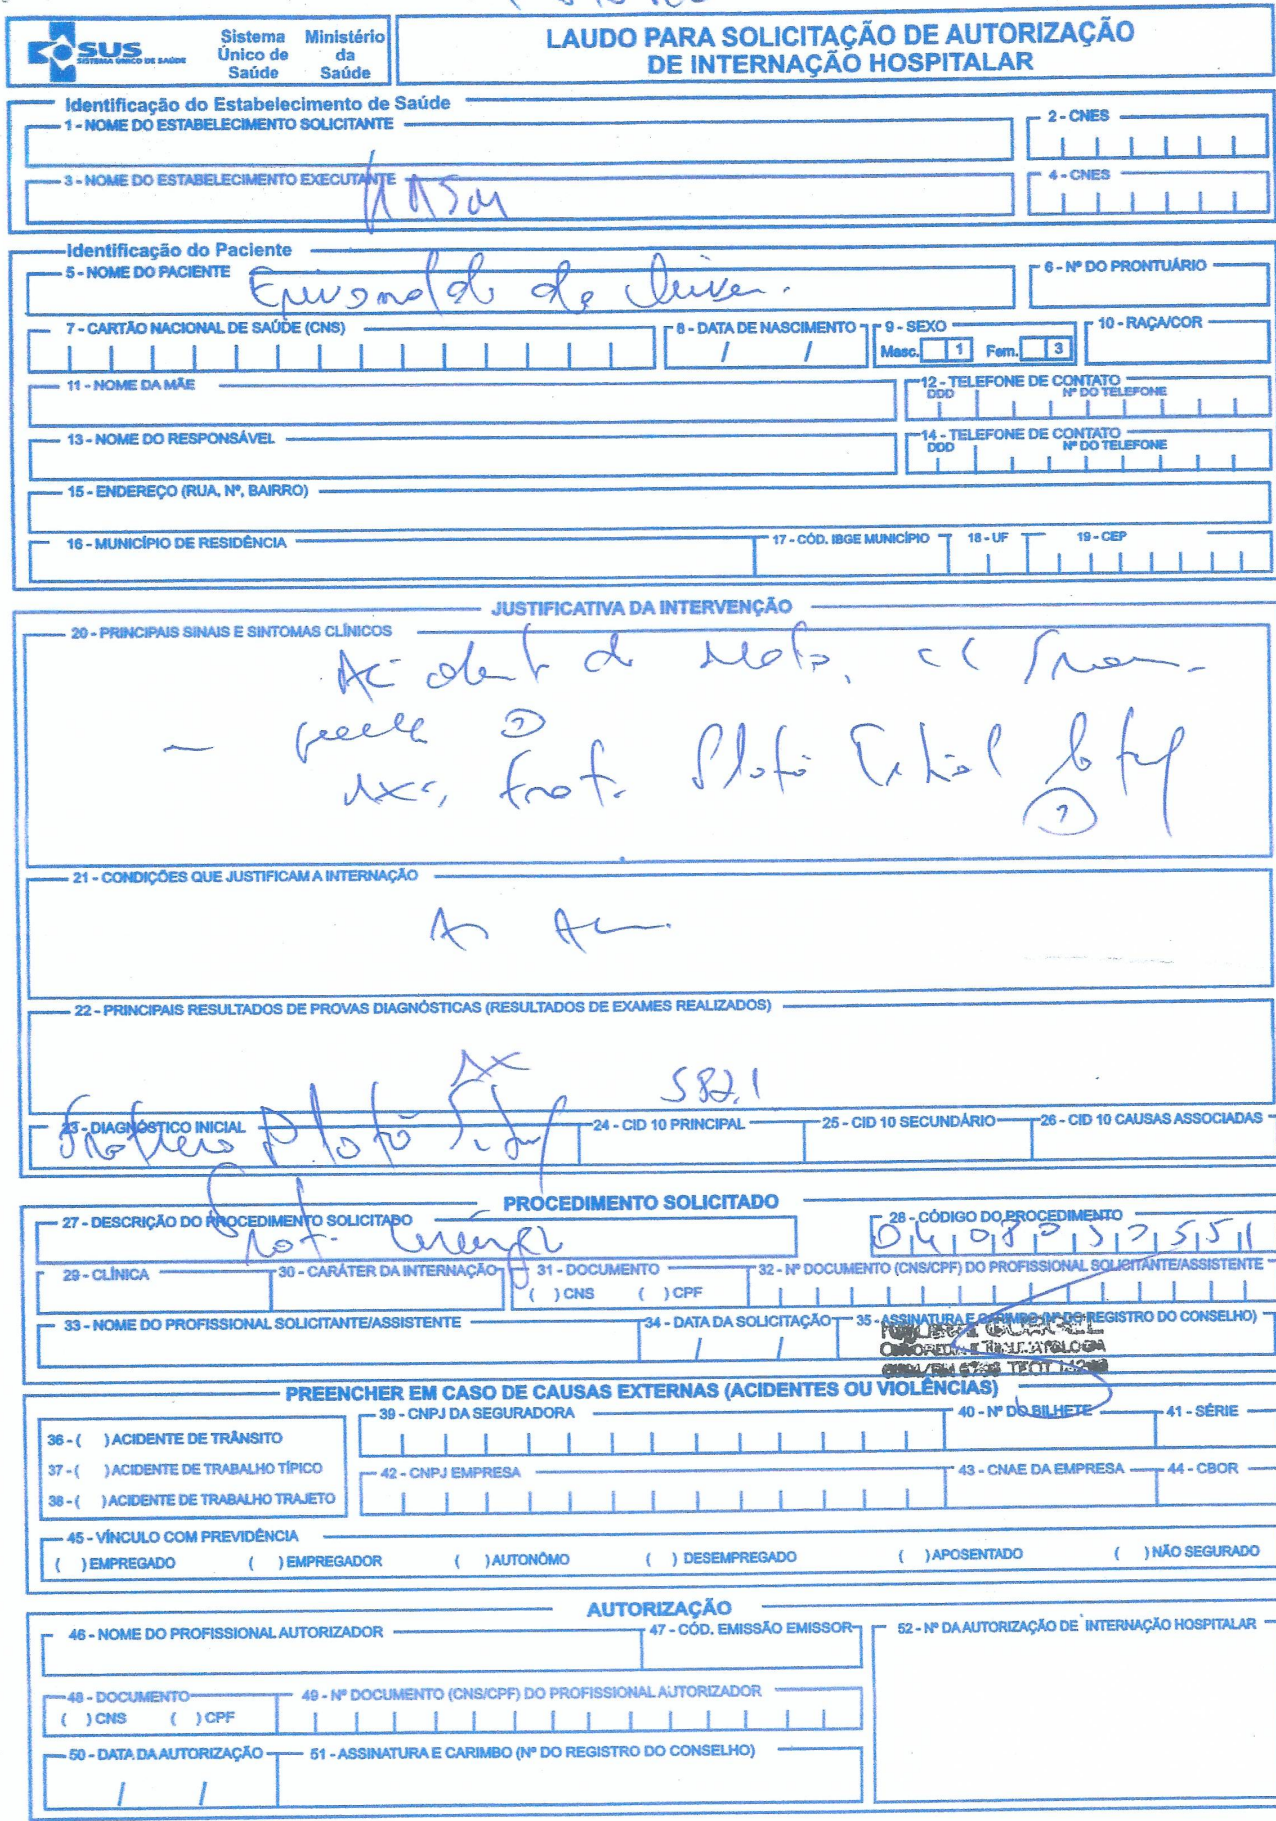 SUS
SISTEMA ÚNICO DE SAÚDE
Sistema Único de Saúde
Ministério da Saúde
LAUDO PARA SOLICITAÇÃO DE AUTORIZAÇÃO
DE INTERNAÇÃO HOSPITALAR
Identificação do Estabelecimento de Saúde
1 - NOME DO ESTABELECIMENTO SOLICITANTE
2 - CNES
3 - NOME DO ESTABELECIMENTO EXECUTANTE
4 - CNES
Identificação do Paciente
5 - NOME DO PACIENTE
6 - Nº DO PRONTUÁRIO
de
7 - CARTÃO NACIONAL DE SAÚDE (CNS)
8 - DATA DE NASCIMENTO
/ /
9 - SEXO
Masc. 1 Fem. 3
10 - RAÇA/COR
11 - NOME DA MÃE
12 - TELEFONE DE CONTATO
DDD Nº DO TELEFONE
13 - NOME DO RESPONSÁVEL
14 - TELEFONE DE CONTATO
DDD Nº DO TELEFONE
15 - ENDEREÇO (RUA, Nº, BAIRRO)
16 - MUNICÍPIO DE RESIDÊNCIA
17 - CÓD. IBGE MUNICÍPIO
18 - UF
19 - CEP
JUSTIFICATIVA DA INTERVENÇÃO
20 - PRINCIPAIS SINAIS E SINTOMAS CLÍNICOS
Acidente de Moto,
Frat. Platô Tibial
21 - CONDIÇÕES QUE JUSTIFICAM A INTERNAÇÃO
22 - PRINCIPAIS RESULTADOS DE PROVAS DIAGNÓSTICAS (RESULTADOS DE EXAMES REALIZADOS)
RX
S82.1
23 - DIAGNÓSTICO INICIAL
Fratura Platô
24 - CID 10 PRINCIPAL
25 - CID 10 SECUNDÁRIO
26 - CID 10 CAUSAS ASSOCIADAS
PROCEDIMENTO SOLICITADO
27 - DESCRIÇÃO DO PROCEDIMENTO SOLICITADO
28 - CÓDIGO DO PROCEDIMENTO
0408050551
29 - CLÍNICA
30 - CARÁTER DA INTERNAÇÃO
31 - DOCUMENTO
( ) CNS ( ) CPF
32 - Nº DOCUMENTO (CNS/CPF) DO PROFISSIONAL SOLICITANTE/ASSISTENTE
33 - NOME DO PROFISSIONAL SOLICITANTE/ASSISTENTE
34 - DATA DA SOLICITAÇÃO
/ /
35 - ASSINATURA E CARIMBO (Nº DO REGISTRO DO CONSELHO)
PREENCHER EM CASO DE CAUSAS EXTERNAS (ACIDENTES OU VIOLÊNCIAS)
36 - ( ) ACIDENTE DE TRÂNSITO
37 - ( ) ACIDENTE DE TRABALHO TÍPICO
38 - ( ) ACIDENTE DE TRABALHO TRAJETO
39 - CNPJ DA SEGURADORA
40 - Nº DO BILHETE
41 - SÉRIE
42 - CNPJ EMPRESA
43 - CNAE DA EMPRESA
44 - CBOR
45 - VÍNCULO COM PREVIDÊNCIA
( ) EMPREGADO ( ) EMPREGADOR ( ) AUTONÔMO ( ) DESEMPREGADO ( ) APOSENTADO ( ) NÃO SEGURADO
AUTORIZAÇÃO
46 - NOME DO PROFISSIONAL AUTORIZADOR
47 - CÓD. EMISSÃO EMISSOR
52 - Nº DA AUTORIZAÇÃO DE INTERNAÇÃO HOSPITALAR
48 - DOCUMENTO
( ) CNS ( ) CPF
49 - Nº DOCUMENTO (CNS/CPF) DO PROFISSIONAL AUTORIZADOR
50 - DATA DA AUTORIZAÇÃO
/ /
51 - ASSINATURA E CARIMBO (Nº DO REGISTRO DO CONSELHO)